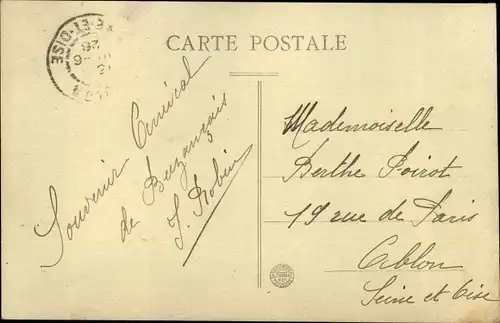 CARTE POSTALE
Souvenir Amical
de Buzançais
J. Robin
Mademoiselle
Berthe Poirot
19 rue de Paris
Ablon
Seine et Oise